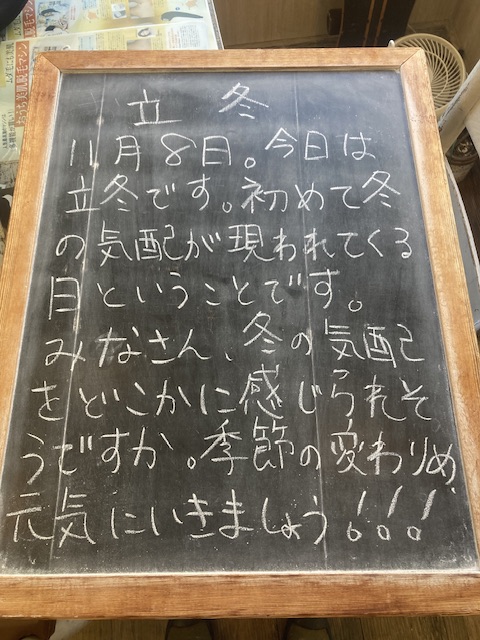 立冬
11月8日。今日は
立冬です。初めて冬
の気配が現われてくる
日ということです。
みなさん、冬の気配
をどこかに感じられそ
うですか。季節の変わりめ、
元気にいきましょう!!!
おうち美肌脱毛マシン